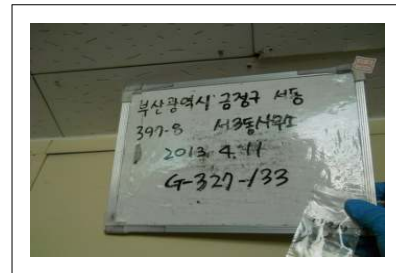 부산광역시 금정구 서동
397-8 서3동사무소
2013. 4. 11
G-327-133